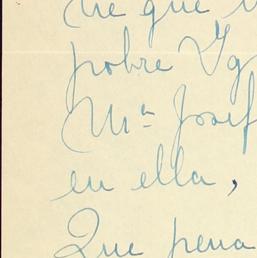 que
pobre Yg
Mª Josef
en ella,
Que pena